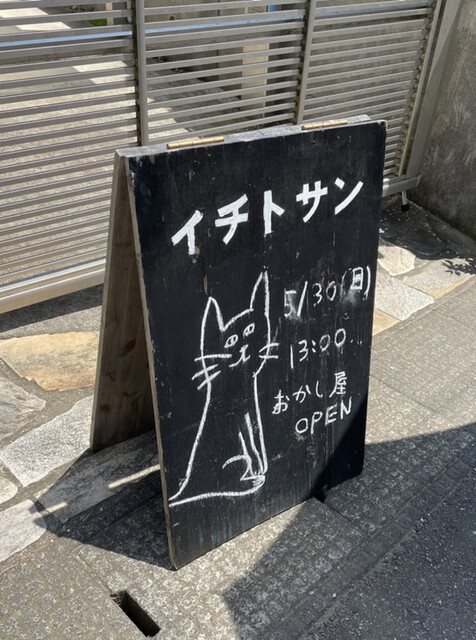 イチトサン
5/30(日)
13:00..
おかし屋
OPEN